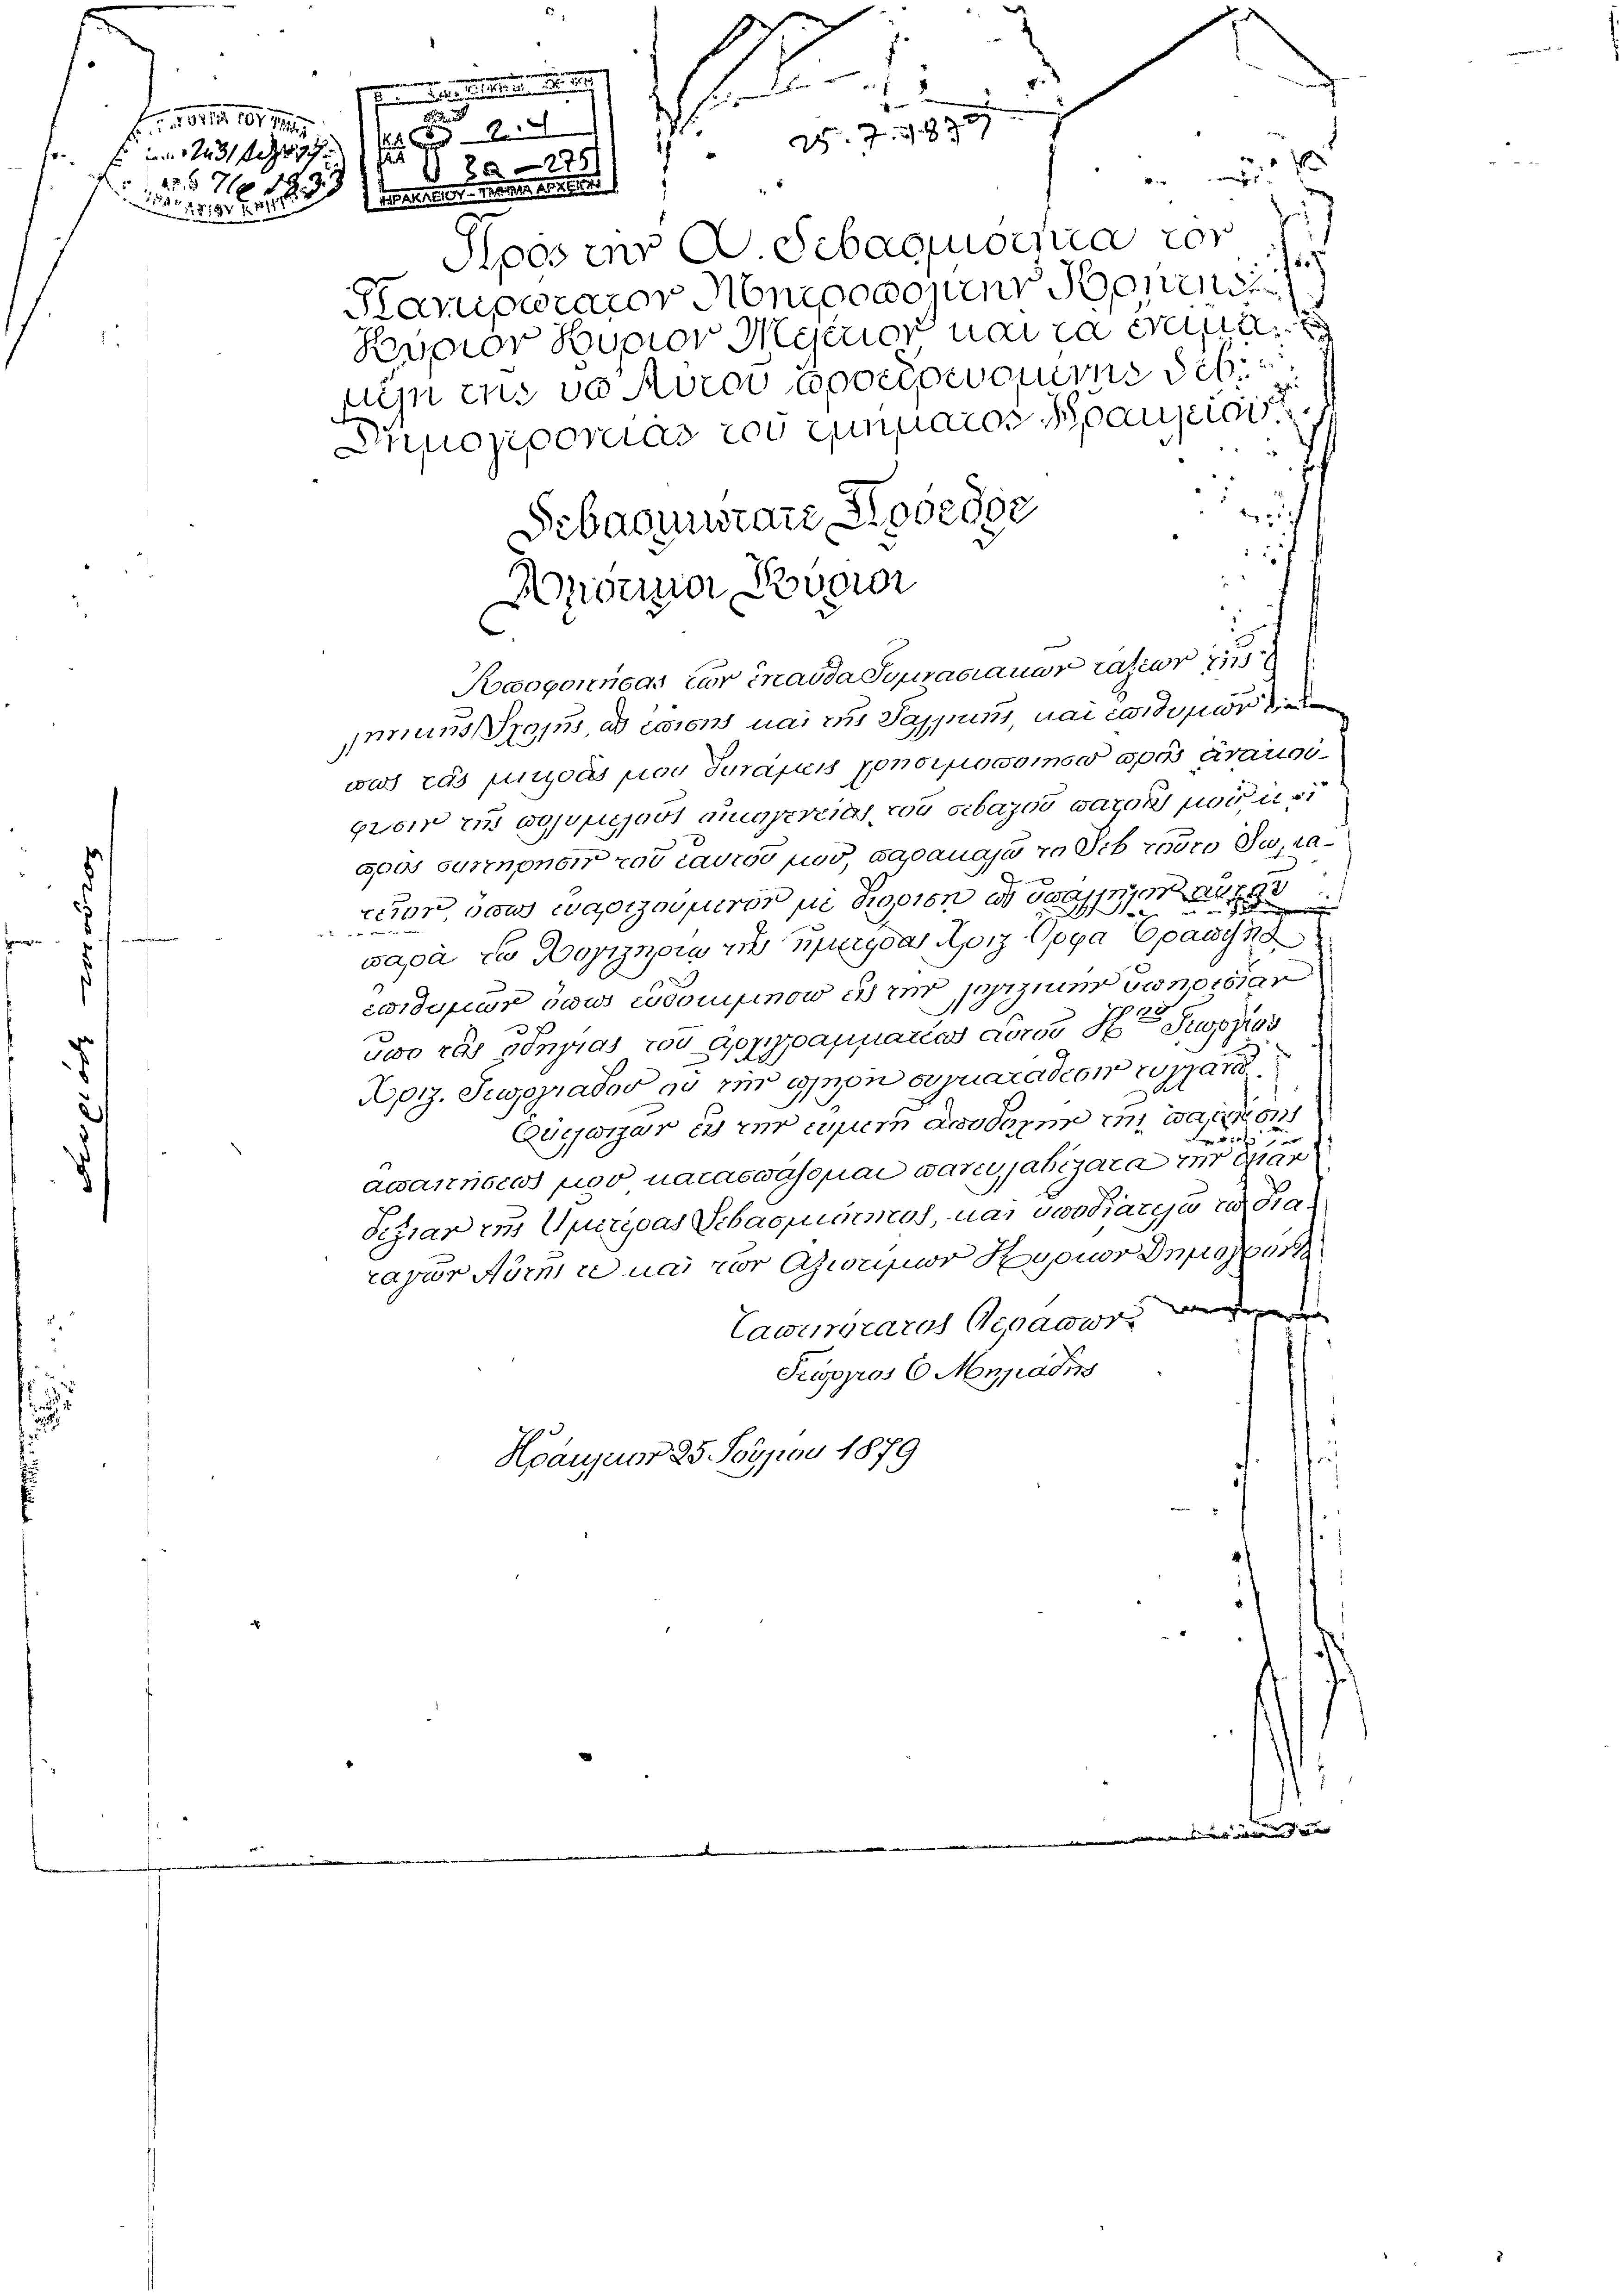 25.7.1879
2-4
3α-275
ΗΡΑΚΛΕΙΟΥ - ΤΜΗΜΑ ΑΡΧΕΙΩΝ
Πρὸς τὴν Α. Σεβασμιότητα τὸν
Πανιερώτατον Μητροπολίτην Κρήτης
Κύριον Κύριον Μελέτιον καὶ τὰ ἔντιμα
μέλη τῆς ὑπ' Αὐτοῦ προεδρευομένης Σεβ.
Δημογεροντίας τοῦ τμήματος Ἡρακλείου.
Σεβασμιώτατε Πρόεδρε
Ἀξιότιμοι Κύριοι
Ἀποφοιτήσας τῶν ἐνταῦθα Γυμνασιακῶν τάξεων τῆς Ἑ
λληνικῆς Σχολῆς, ὡς ἐπίσης καὶ τῆς Γαλλικῆς, καὶ ἐπιθυμῶν
πως τὰς μικράς μου δυνάμεις χρησιμοποιήσω πρὸς ἀνακού-
φισιν τῆς πολυμελοῦς οἰκογενείας τοῦ σεβαστοῦ πατρός μου
πρὸς συντήρησιν τοῦ ἑαυτοῦ μου, παρακαλῶ τὸ Σεβ τοῦτο Σωμα-
τεῖον, ὅπως εὐαρεστούμενον μὲ διορίσῃ ὡς ὑπάλληλον αὐτοῦ
παρὰ τῷ Λογιστηρίῳ τῆς ἡμετέρας Χριστ Ὀρφα Τραπέζης
ἐπιθυμῶν ὅπως εὐδοκιμήσω εἰς τὴν λογιστικὴν ὑπηρεσίαν
ὑπὸ τὰς ὁδηγίας τοῦ ἀρχιγραμματέως αὐτοῦ Κου Γεωργίου
Χριστ. Γεωργιάδου οὗ τὴν πλήρη συγκατάθεσιν τυγχάνω.
Εὐελπιστῶν εἰς τὴν εὐμενῆ ἀποδοχὴν τῆς παρούσης
ἀπαιτήσεώς μου κατασπάζομαι πανευλαβέστατα τὴν ἁγίαν
δεξιὰν τῆς Ὑμετέρας Σεβασμιότητος, καὶ ὑποδιατελῶ τῶν δια-
ταγῶν Αὐτῆς τε καὶ τῶν Ἀξιοτίμων Κυρίων Δημογερόντων
Ταπεινότατος Θεράπων
Γεώργιος Ε Μηλιάδης
Ἡράκλειον 25 Ἰουλίου 1879